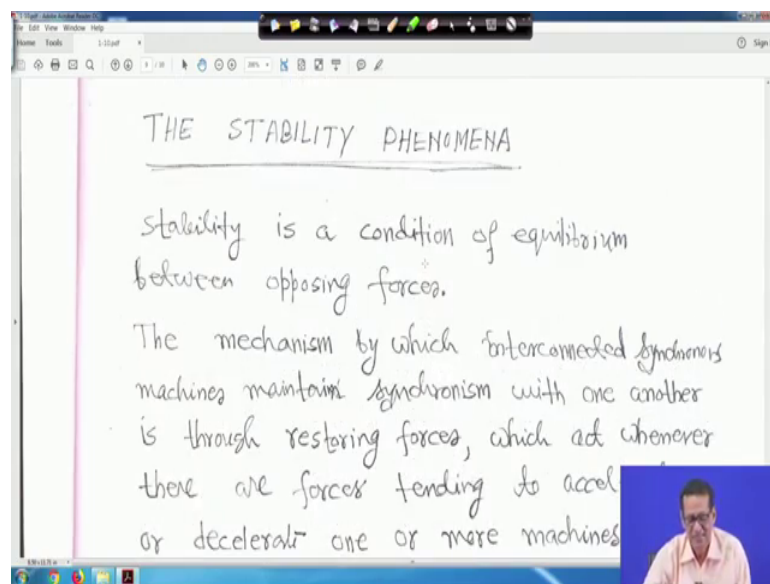 1-10.pdf - Adobe Acrobat Reader DC
File Edit View Window Help
Home Tools 1-10.pdf × Sign
THE STABILITY PHENOMENA
Stability is a condition of equilibrium
between opposing forces.
The mechanism by which interconnected synchronous
machines maintain synchronism with one another
is through restoring forces, which act whenever
there are forces tending to accel
or decelerate one or more machines